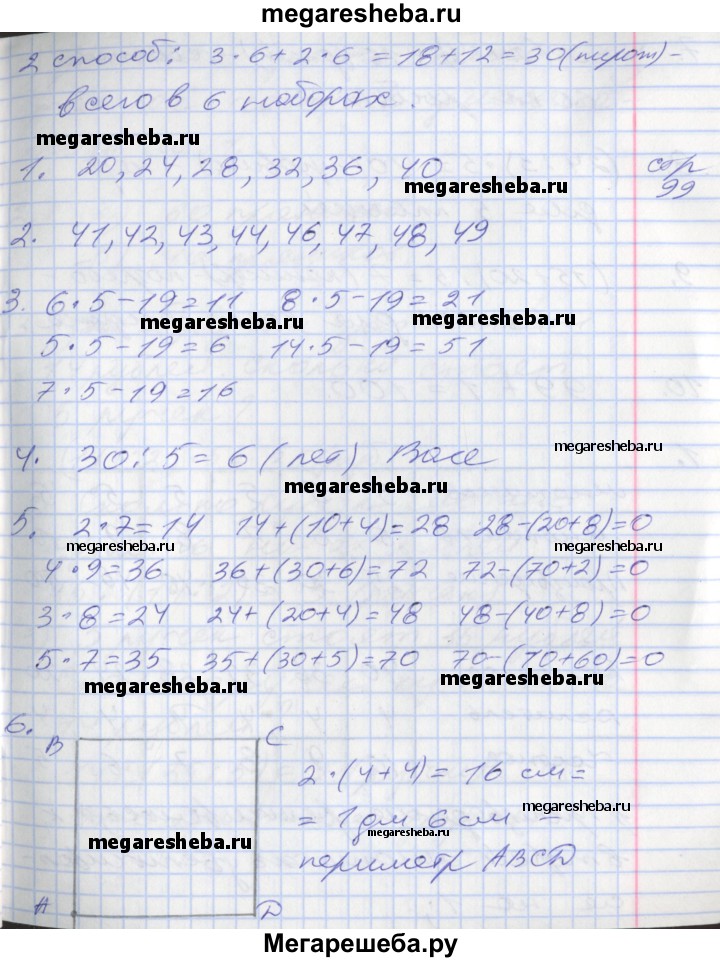 megaresheba.ru
2 способ: 3·6+2·6 = 18+12 = 30 (пирож) –
всего в 6 наборах.
megaresheba.ru
1. 20, 24, 28, 32, 36, 40 стр 99
megaresheba.ru
2. 41, 42, 43, 44, 46, 47, 48, 49
3. 6·5–19=11 8·5–19=21
megaresheba.ru megaresheba.ru
5·5–19=6 14·5–19=51
7·5–19=16
4. 30:5=6 (лет) Васе
megaresheba.ru
megaresheba.ru
5. 2·7=14 14+(10+4)=28 28–(20+8)=0
megaresheba.ru megaresheba.ru
4·9=36 36+(30+6)=72 72–(70+2)=0
3·8=24 24+(20+4)=48 48–(40+8)=0
5·7=35 35+(30+5)=70 70–(70+60)=0
megaresheba.ru megaresheba.ru
6.
B C
2·(4+4)=16 см=
megaresheba.ru
= 1дм 6 см =
megaresheba.ru
megaresheba.ru
периметр ABCD
A D
Мегарешеба.ру